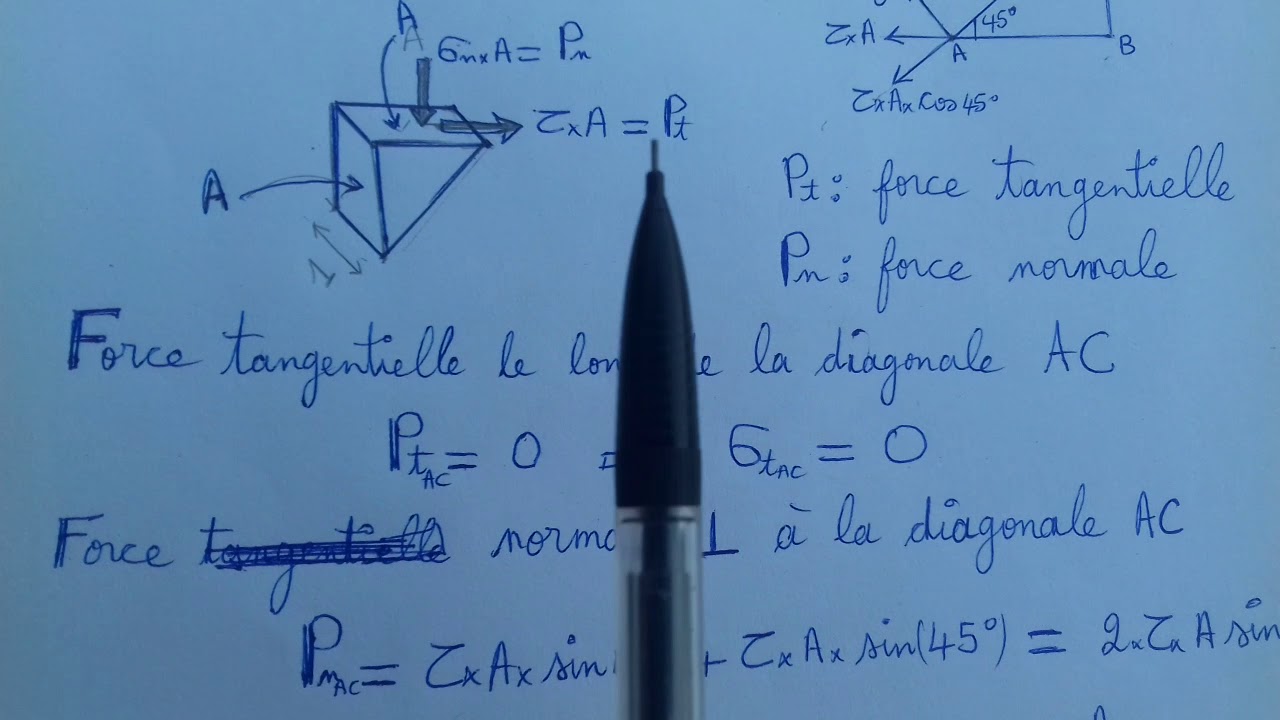 A
A
σn×A = Pn
τ×A = Pt
A
1
τ×A
45°
A
B
τ×A×cos45°
Pt : force tangentielle
Pn : force normale
Force tangentielle le la diagonale AC
PtAC = 0 σtAC = 0
Force tangentielle ⊥ à la diagonale AC
PnAC = τ×A×sin + τ×A×sin(45°) = 2×τ×A sin